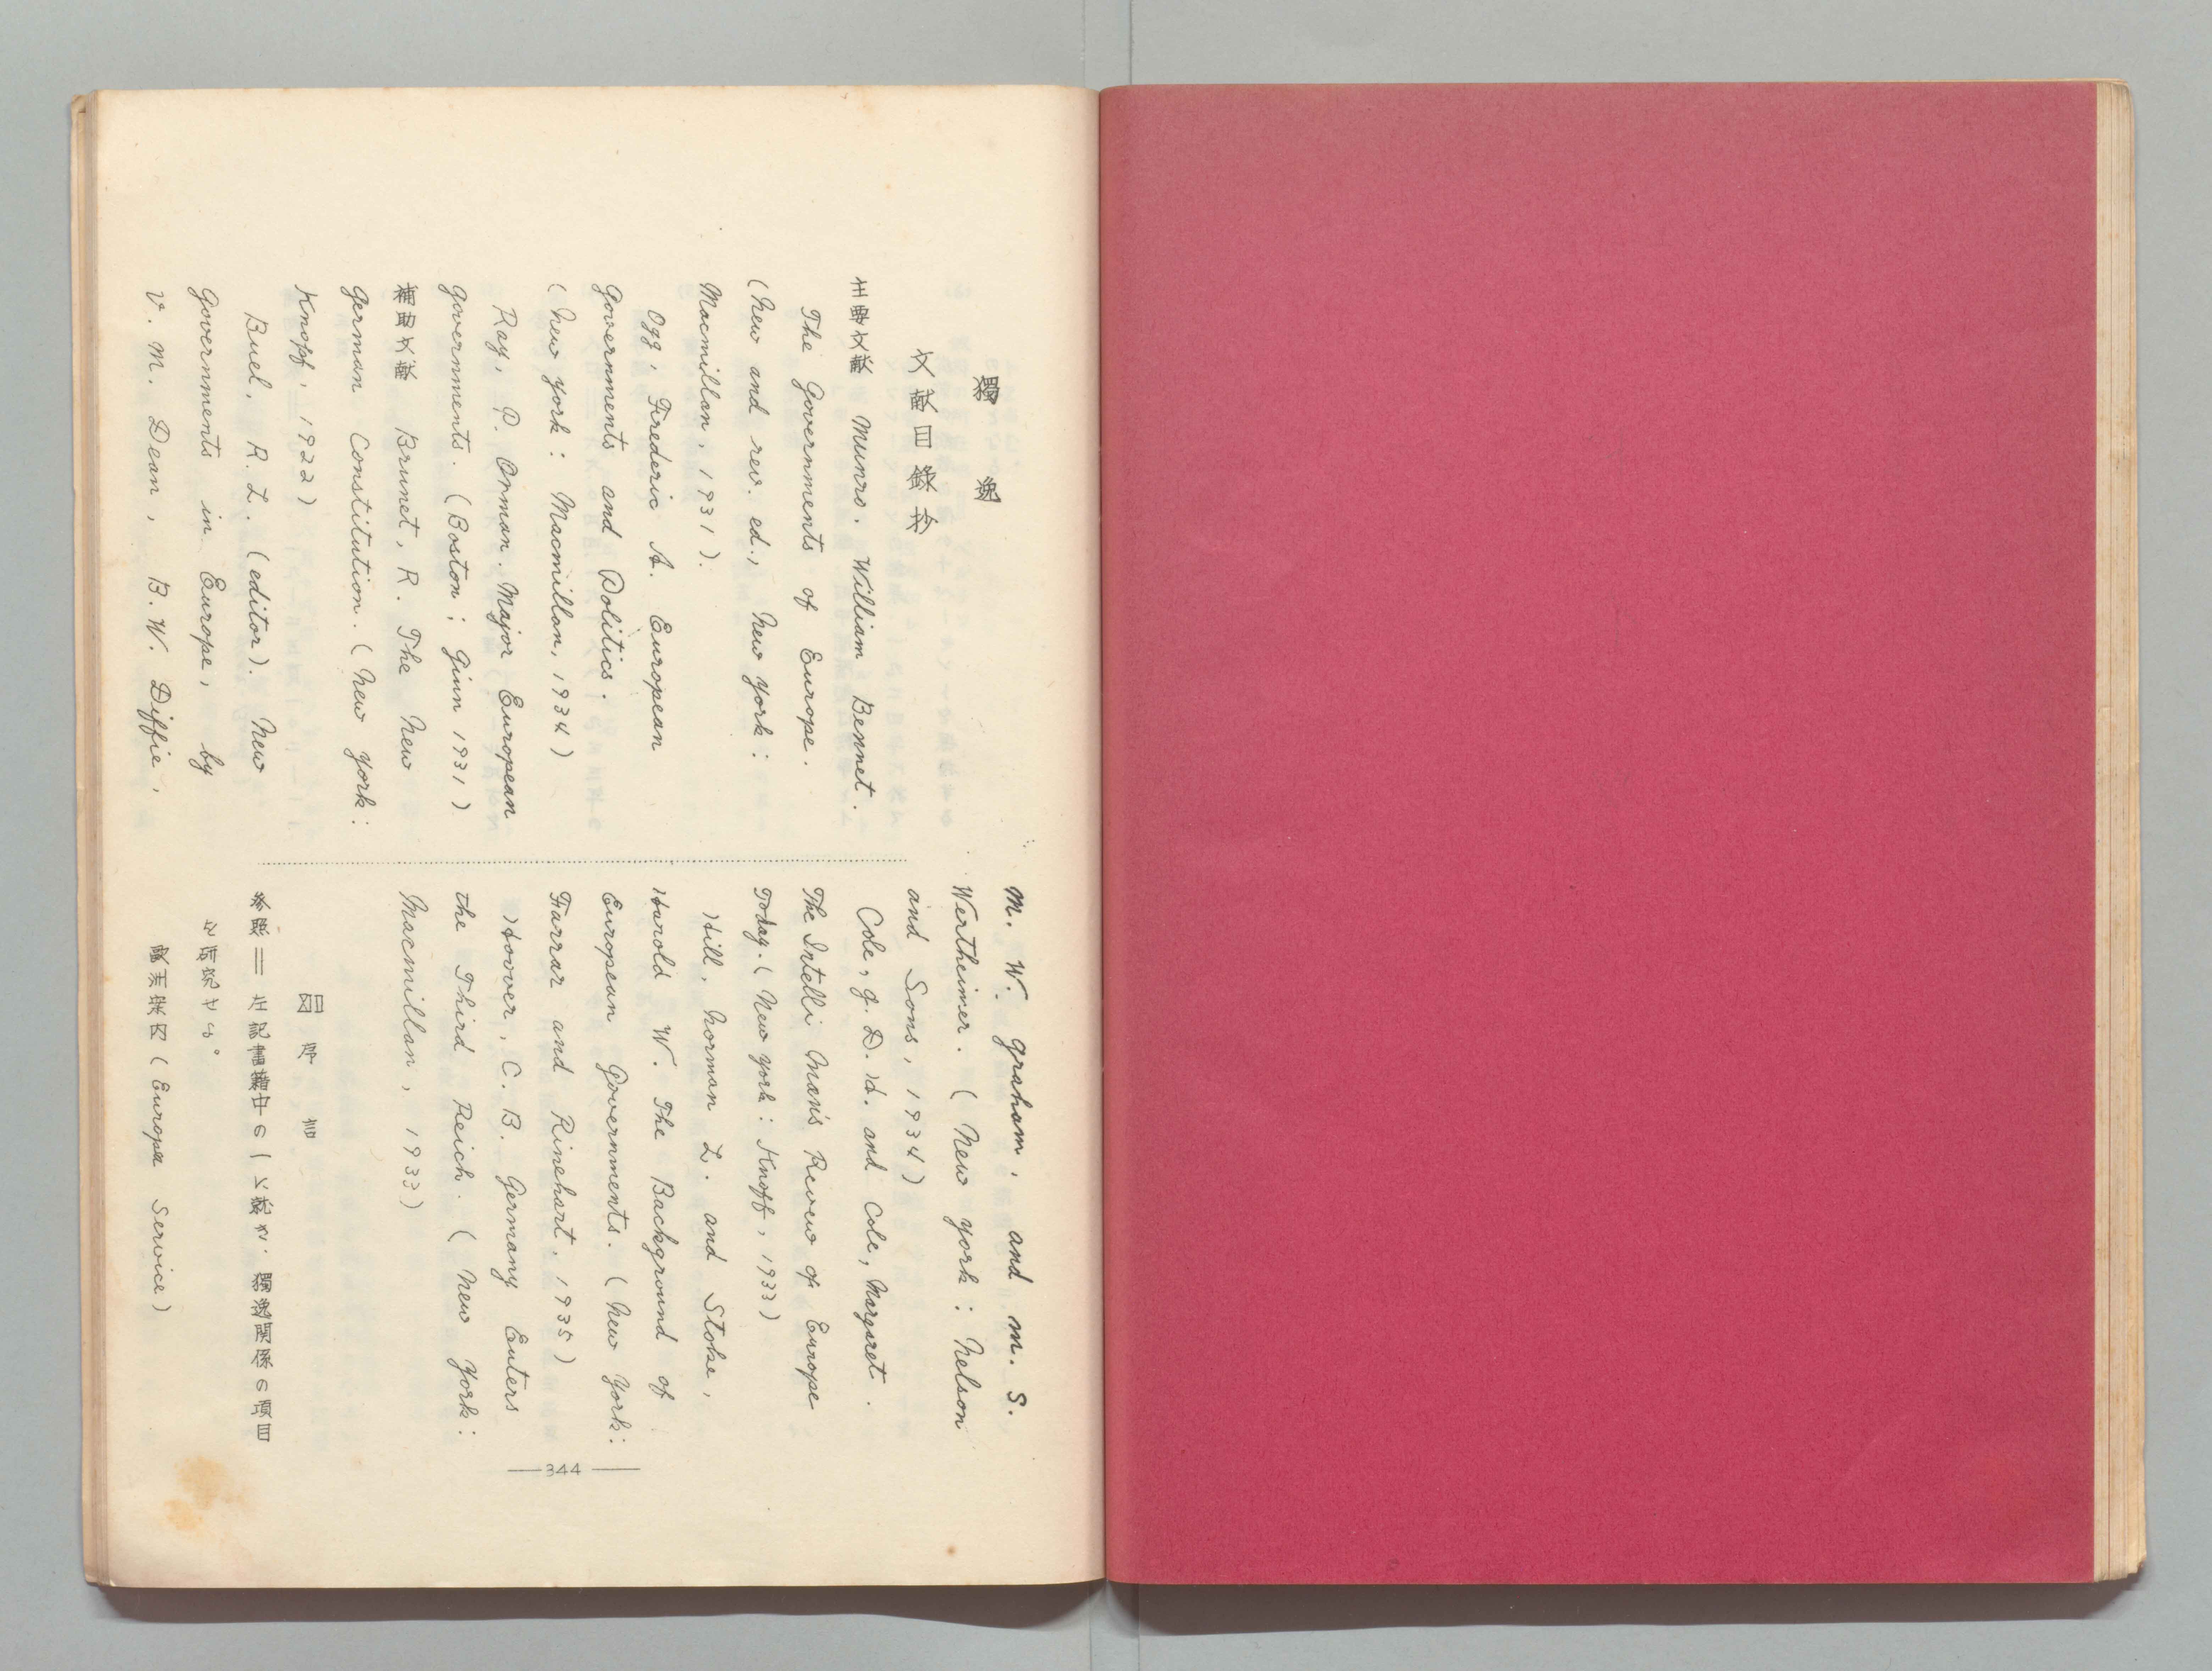 獨逸
文献目錄抄
主要文献 Munro. William Bennet.
The Governments of Europe.
(New and rev. ed., New York:
Macmillan, 1931).
Ogg, Frederic A. European
Governments and Politics.
(New York: Macmillan, 1934)
Ray, P. Orman. Major European
governments. (Boston: Ginn 1931)
補助文献 Brunet, R. The New
German Constitution. (New York:
Knopf, 1922)
Buel, R. L. (editor). New
Governments in Europe, by
V. M. Dean, B. W. Diffie,
M. W. Graham, and M. S.
Wertheimer. (New York: Nelson
and Sons, 1934)
Cole, G. D. H. and Cole, Margaret.
The Intelli Man's Reveiw of Europe
Today. (New York: Knoff, 1933)
Hill, Norman L. and Stoke,
Harold W. The Background of
European Governments. (New York:
Farrar and Rinehart, 1935)
Hoover, C. B. Germany Enters
the Third Reich. (New York:
Macmillan, 1933)
序言
参照＝左記書籍中の 獨逸関係の項目
を研究せよ。
(Europa Service)
—344—